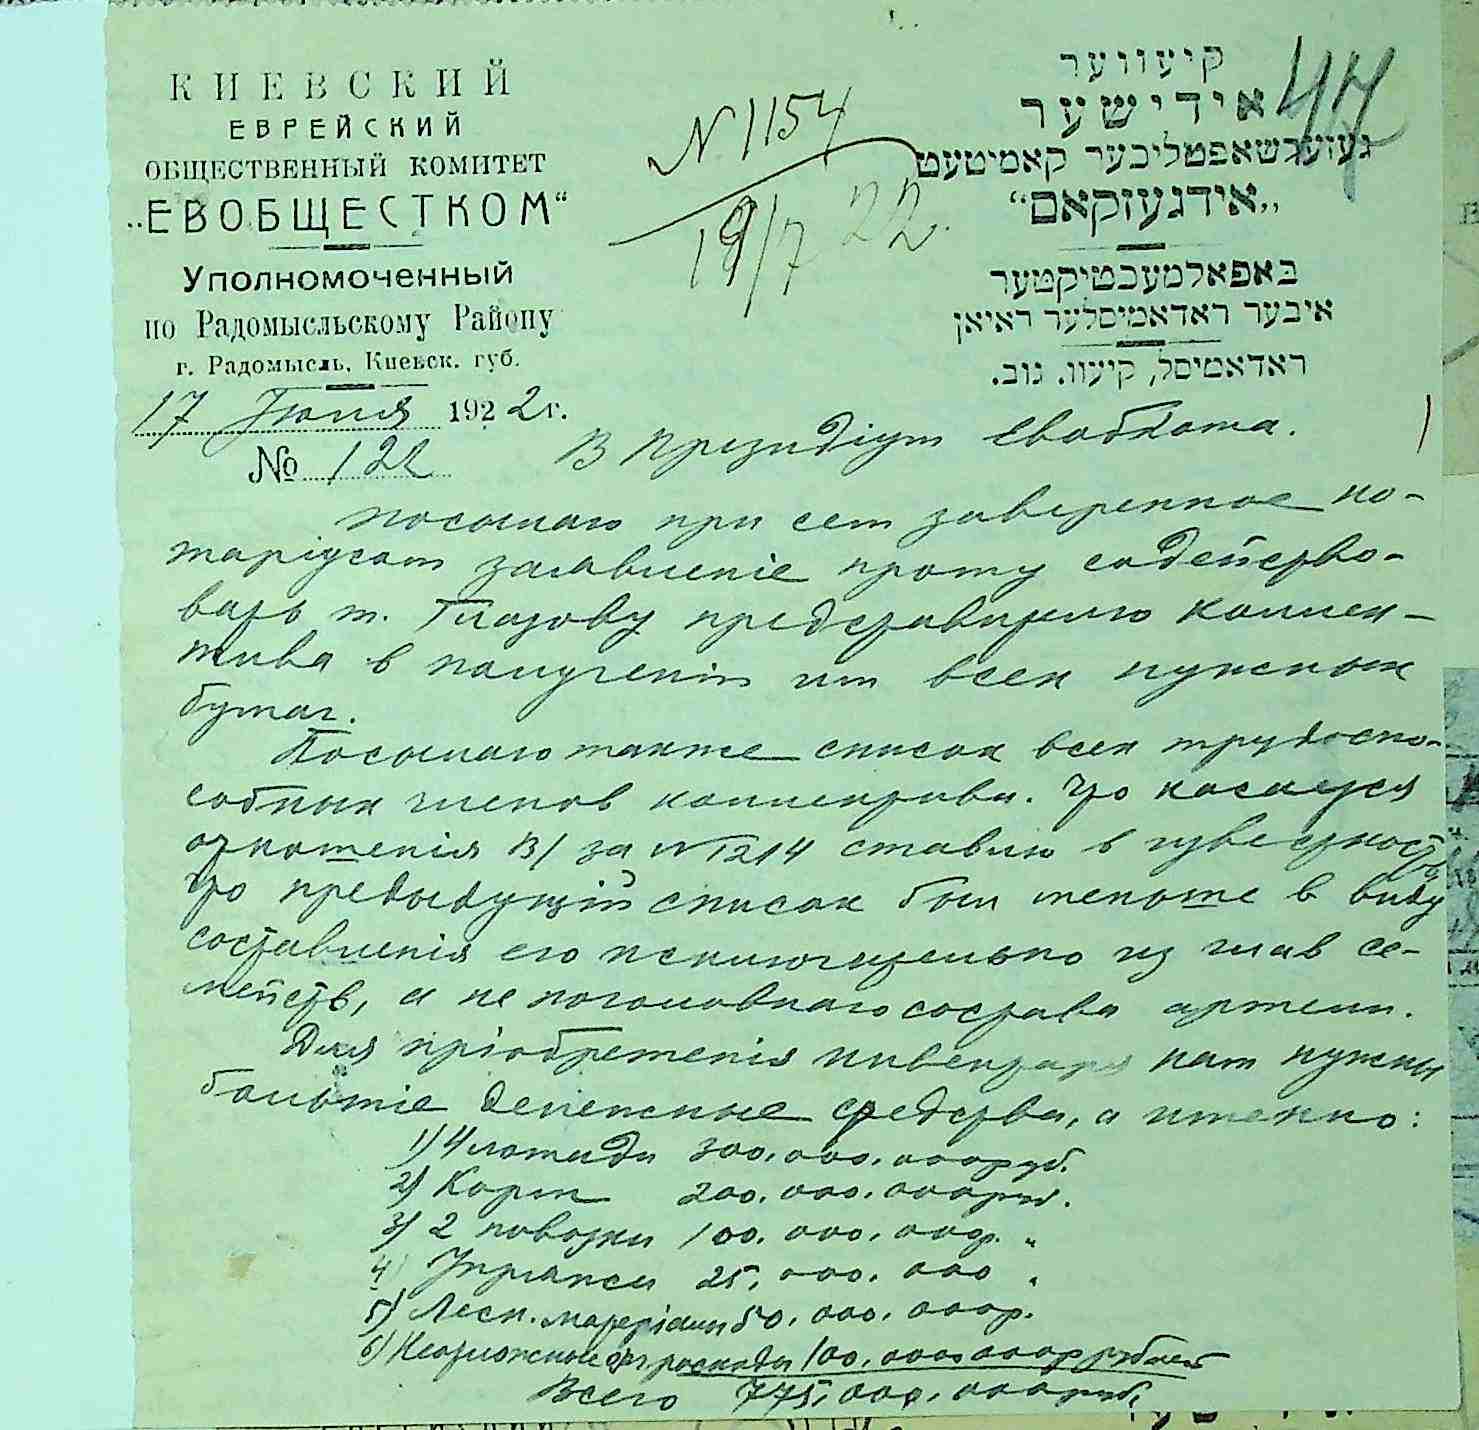 КИЕВСКИЙ
ЕВРЕЙСКИЙ
ОБЩЕСТВЕННЫЙ КОМИТЕТ
„ЕВОБЩЕСТКОМ“
Уполномоченный
по Радомысльскому Району
г. Радомысль, Киевск. губ.
17 Июля 1922 г.
№ 122
N 1154
19/7 22.
47
קיעווער
אידישער
געזעלשאפטליכער קאמיטעט
„אידגעזקאם“
באפאלמעכטיקטער
איבער ראדאמיסלער ראיאן
ראדאמיסל, קיעוו. גוב.
В Президіум Евобкома.
Посылаю при сем заверенное но-
таріусом заявленіе прошу содейство-
вать т. Глазову представителю коллек-
тива в полученіи им всех нужных
бумаг.
Посылаю также список всех трудоспо-
собных членов коллектива. Что касается
отношенія В/ за N 1214 ставлю в известность
что предыдущій список был меньше в виду
составленія его исключительно из глав се-
мейств, а не поголовнаго состава артели.
Для пріобретенія инвентаря нам нужны
большіе денежные средства, а именно:
1) 4 лошади 300.000.000 руб.
2) Корм 200.000.000 руб.
3) 2 повозки 100.000.000 р. "
4) Упряжси 25.000.000 "
5) Лесн. матеріалы 50.000.000 р.
6) Неотложные расходы 100.000.000 рублей
Всего 775.000.000 руб.